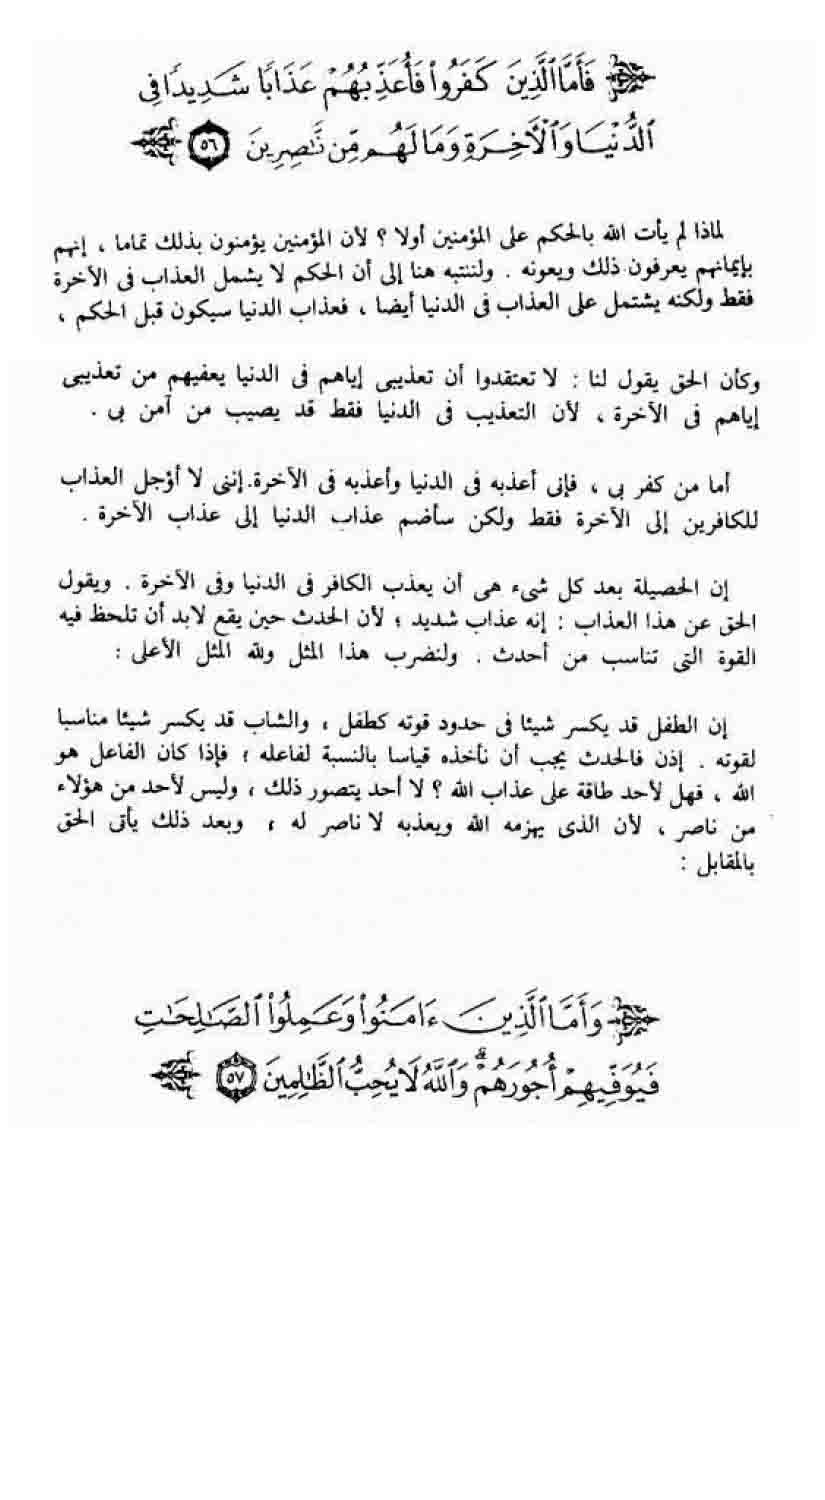 فَأَمَّا ٱلَّذِينَ كَفَرُوا۟ فَأُعَذِّبُهُمْ عَذَابًا شَدِيدًا فِى
ٱلدُّنْيَا وَٱلْـَٔاخِرَةِ وَمَا لَهُم مِّن نَّـٰصِرِينَ ٥٦
لماذا لم يأت الله بالحكم على المؤمنين أولا ؟ لأن المؤمنين يؤمنون بذلك تماما ، إنهم
بإيمانهم يعرفون ذلك ويعونه . ولننتبه هنا إلى أن الحكم لا يشمل العذاب فى الآخرة
فقط ولكنه يشتمل على العذاب فى الدنيا أيضا ، فعذاب الدنيا سيكون قبل الحكم ،
وكأن الحق يقول لنا : لا تعتقدوا أن تعذيبى إياهم فى الدنيا يعفيهم من تعذيبى
إياهم فى الآخرة ، لأن التعذيب فى الدنيا فقط قد يصيب من آمن بى .
أما من كفر بى ، فإنى أعذبه فى الدنيا وأعذبه فى الآخرة.إننى لا أؤجل العذاب
للكافرين إلى الآخرة فقط ولكن سأضم عذاب الدنيا إلى عذاب الآخرة .
إن الحصيلة بعد كل شىء هى أن يعذب الكافر فى الدنيا وفى الآخرة . ويقول
الحق عن هذا العذاب : إنه عذاب شديد ؛ لأن الحدث حين يقع لابد أن تلحظ فيه
القوة التى تناسب من أحدث . ولنضرب هذا المثل ولله المثل الأعلى :
إن الطفل قد يكسر شيئا فى حدود قوته كطفل ، والشاب قد يكسر شيئا مناسبا
لقوته . إذن فالحدث يجب أن نأخذه قياسا بالنسبة لفاعله ؛ فإذا كان الفاعل هو
الله ، فهل لأحد طاقة على عذاب الله ؟ لا أحد يتصور ذلك ، وليس لأحد من هؤلاء
من ناصر ، لأن الذى يهزمه الله ويعذبه لا ناصر له ، وبعد ذلك يأتى الحق
بالمقابل :
وَأَمَّا ٱلَّذِينَ ءَامَنُوا۟ وَعَمِلُوا۟ ٱلصَّـٰلِحَـٰتِ
فَيُوَفِّيهِمْ أُجُورَهُمْ ۗ وَٱللَّهُ لَا يُحِبُّ ٱلظَّـٰلِمِينَ ٥٧